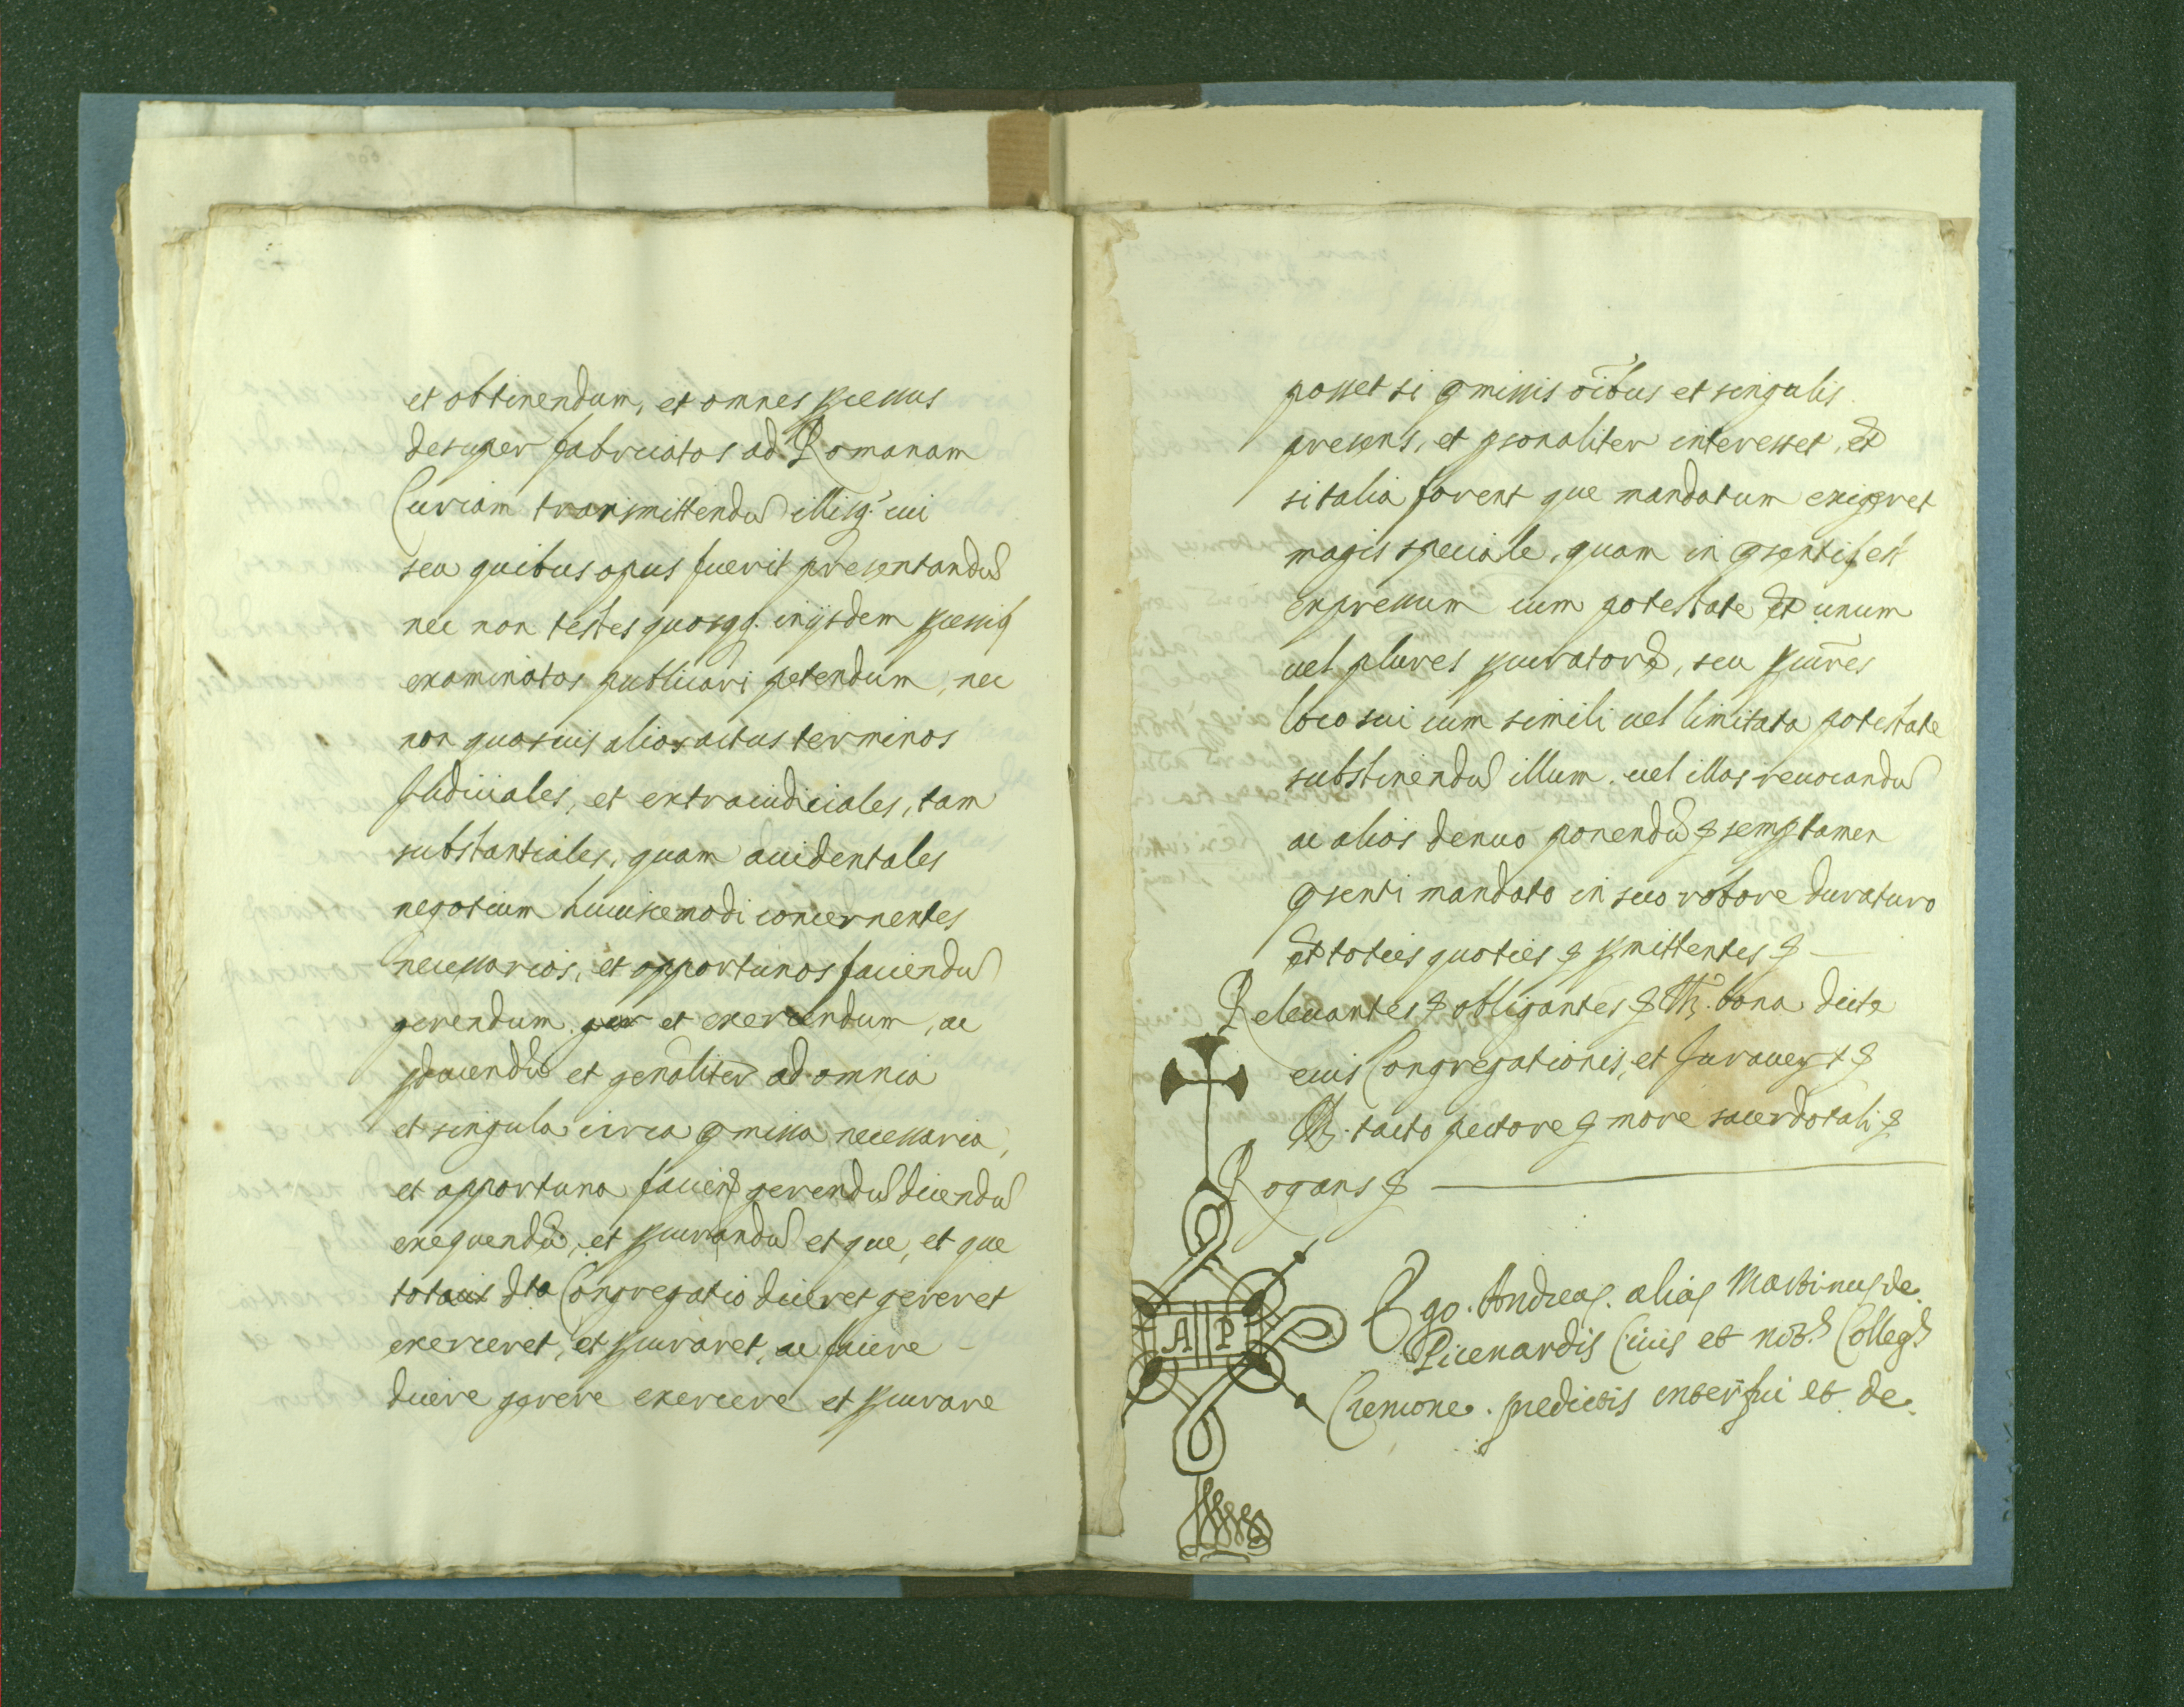 et obtinendum, et omnes processus
desuper fabricatos ad Romanam
Curiam transmittendũ illisq. cui
seu quibus opus fuerit presentandũ
nec non testes quoscq. in ijsdem processib
examinatos publicari petendum, nec
non quosuis alios actus terminos
Judiciales, et extraiudiciales, tam
substantiales, quam accidentales
negotium huiuscemodi concernentes
necessarios, et opportunos faciendũ
gerendum et exercendum, ac
et gen̄aliter ad omnia
et singula circa p̄missa necessaria,
et opportuna faciend gerendũ dicendũ
exequendũ, et procurandũ et que, et que
dta Congregatio diceret gereret
exerceret, et procuraret, ac facere
dicere gerere exercere et procurare
posset si p̄missis oībus et singulis
presens, et personaliter interesset, et
si talia forent que mandatum exigeret
magis speciale, quam in p̄sentib est
expressum cum potestate et unum
uel plures procuratores, seu procūres
loco sui cum simili uel limitata potestate
substinendũ illum uel illos reuocandũ
ac alios denuo ponendũ semp tamen
p̄senti mandato in suo robore duraturo
et toties quoties promittentes
Releuantes obligantes bona dicte
eius Congregationis, et Jurauert
tacto pectore more sacerdotali
Rogans
A P
Ego. Andreas. alias Martinus de
Picenardis Ciuis et not. Colleg.
Cremone. predictis interfui et de